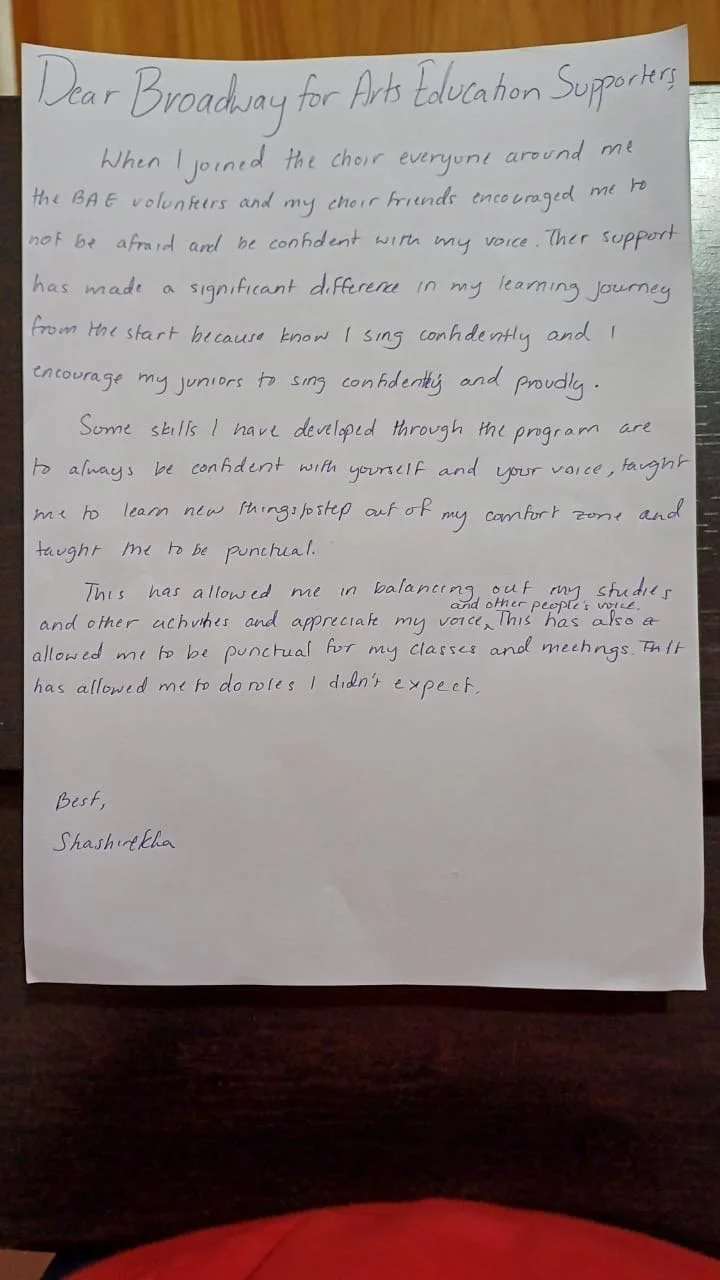 Dear Broadway for Arts Education Supporters,
When I joined the choir everyone around me
the BAE volunteers and my choir friends encouraged me to
not be afraid and be confident with my voice. Ther support
has made a significant difference in my learning journey
from the start because know I sing confidently and I
encourage my juniors to sing confidently and proudly.
Some skills I have developed through the program are
to always be confident with yourself and your voice, taught
me to learn new things, to step out of my comfort zone and
taught me to be punctual.
This has allowed me in balancing out my studies
and other people's voice.
and other activities and appreciate my voice^ This has also
allowed me to be punctual for my classes and meetings. It
has allowed me to do roles I didn't expect.
Best,
Shashirekha